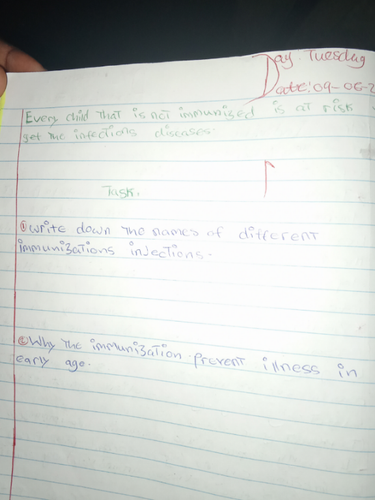 Day: Tuesday
Date: 09-06-2
Every child that is not immunized is at risk
get the infections diseases.
Task.
① Write down the names of different
immunizations injections.
② Why the immunization prevent illness in
early age.